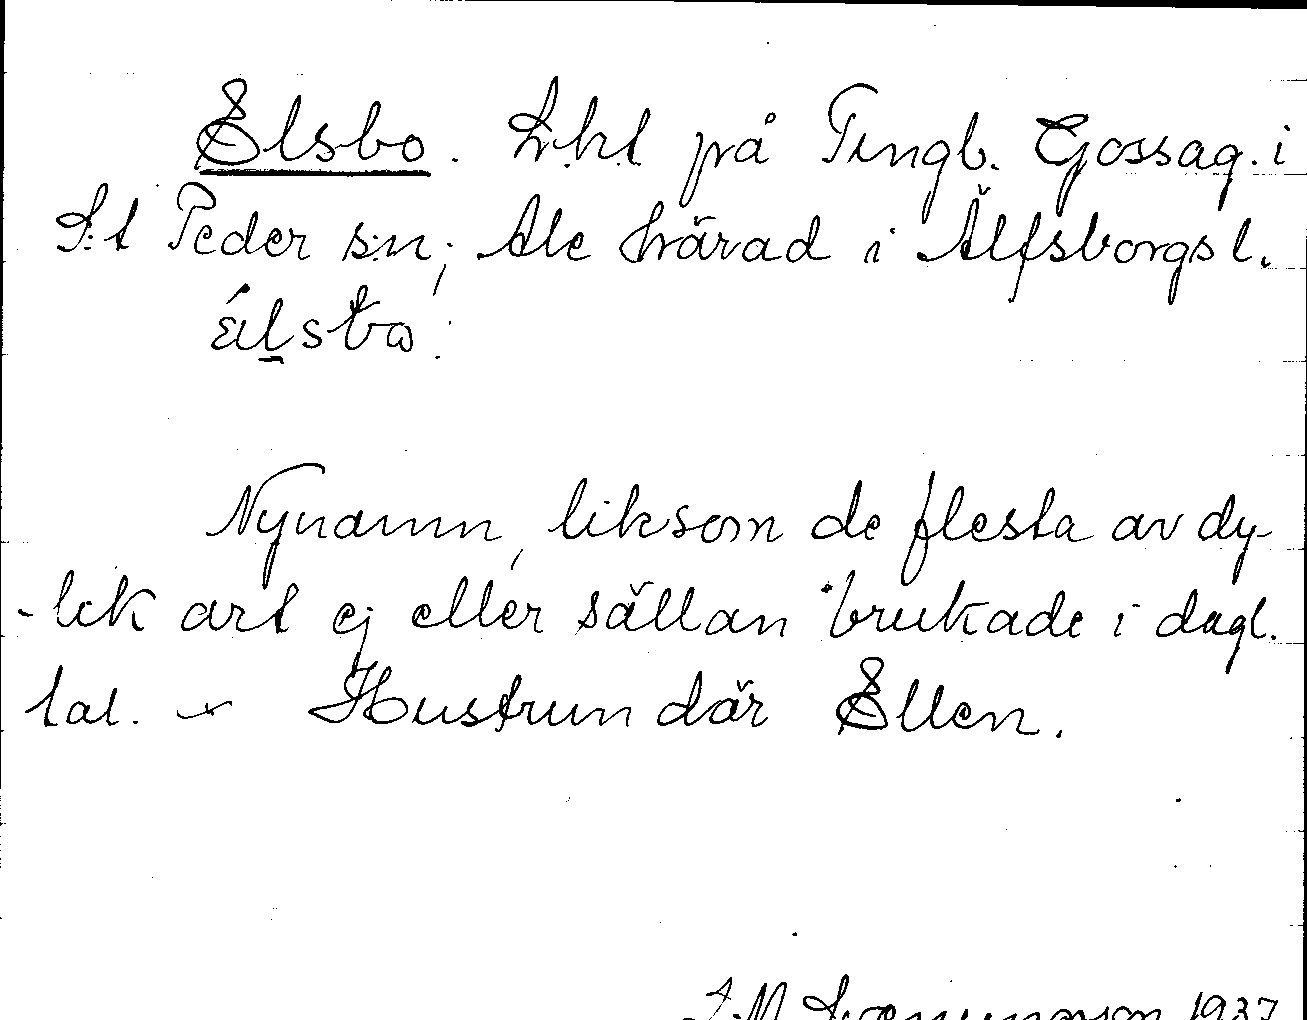 Elsbo. L:ht på Tingb. Gossag. i
S:t Peder s:n; Ale härad i Älfsborgs l.
älsbo.
Nynamn, liksom de flesta av dy-
-lik art ej eller sällan brukade i dagl.
tal. - Hustrun där Ellen.
1937